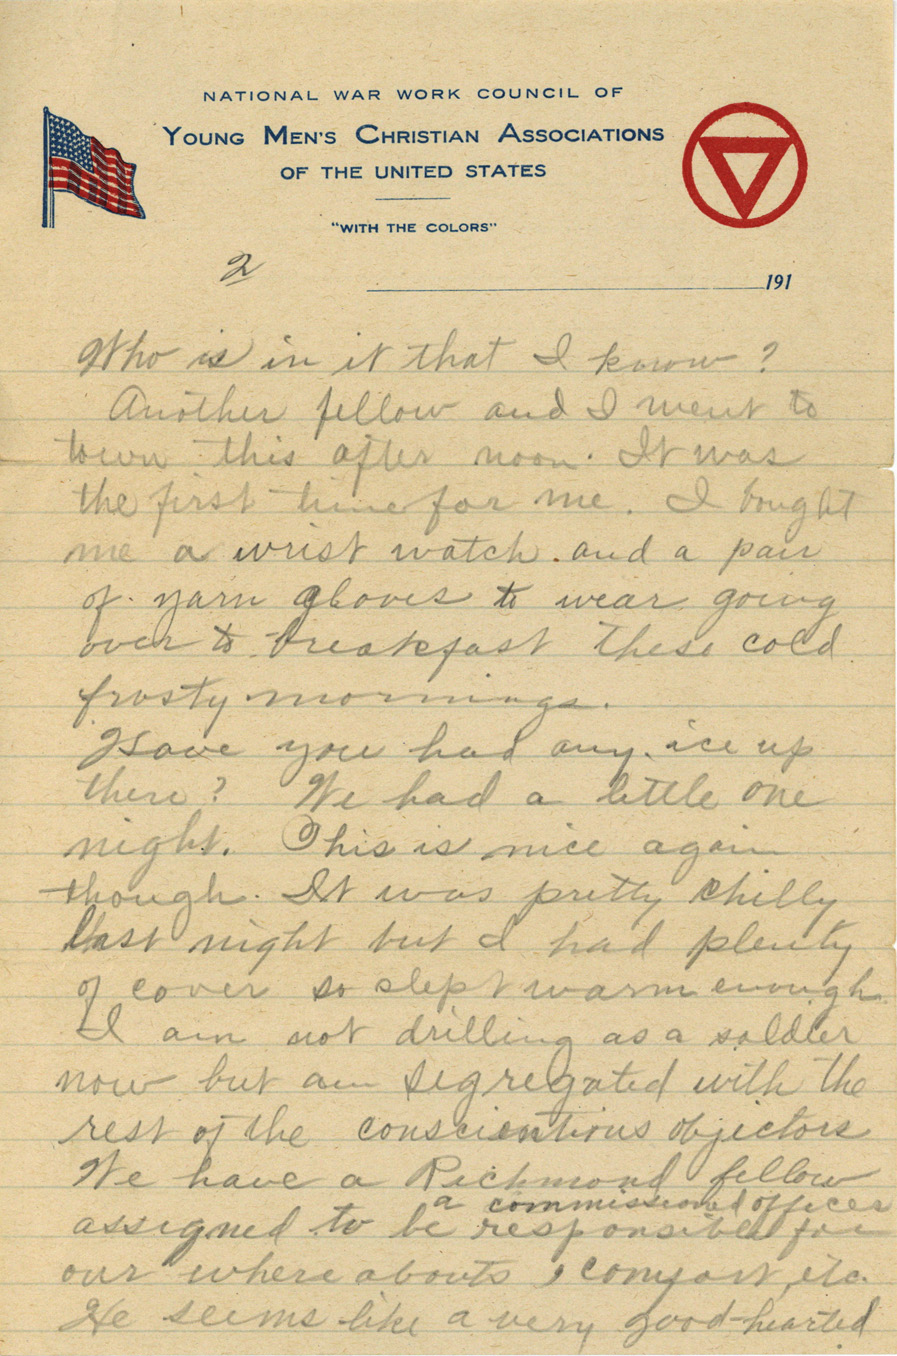 NATIONAL WAR WORK COUNCIL OF
YOUNG MEN'S CHRISTIAN ASSOCIATIONS
OF THE UNITED STATES
"WITH THE COLORS"
2
191
Who is in it that I know?
Another fellow and I went to
town this after noon. It was
the first time for me. I bought
me a wrist watch and a pair
of yarn gloves to wear going
over to breakfast these cold
frosty mornings.
Have you had any ice up
there? We had a little one
night. This is nice again
though. It was pretty chilly
last night but I had plenty
of cover so slept warm enough.
I am not drilling as a soldier
now but am segregated with the
rest of the conscientious objectors
We have a Richmond fellow
a commissioned officer
assigned to be responsible for
our where abouts, comfort, etc.
He seems like a very good-hearted